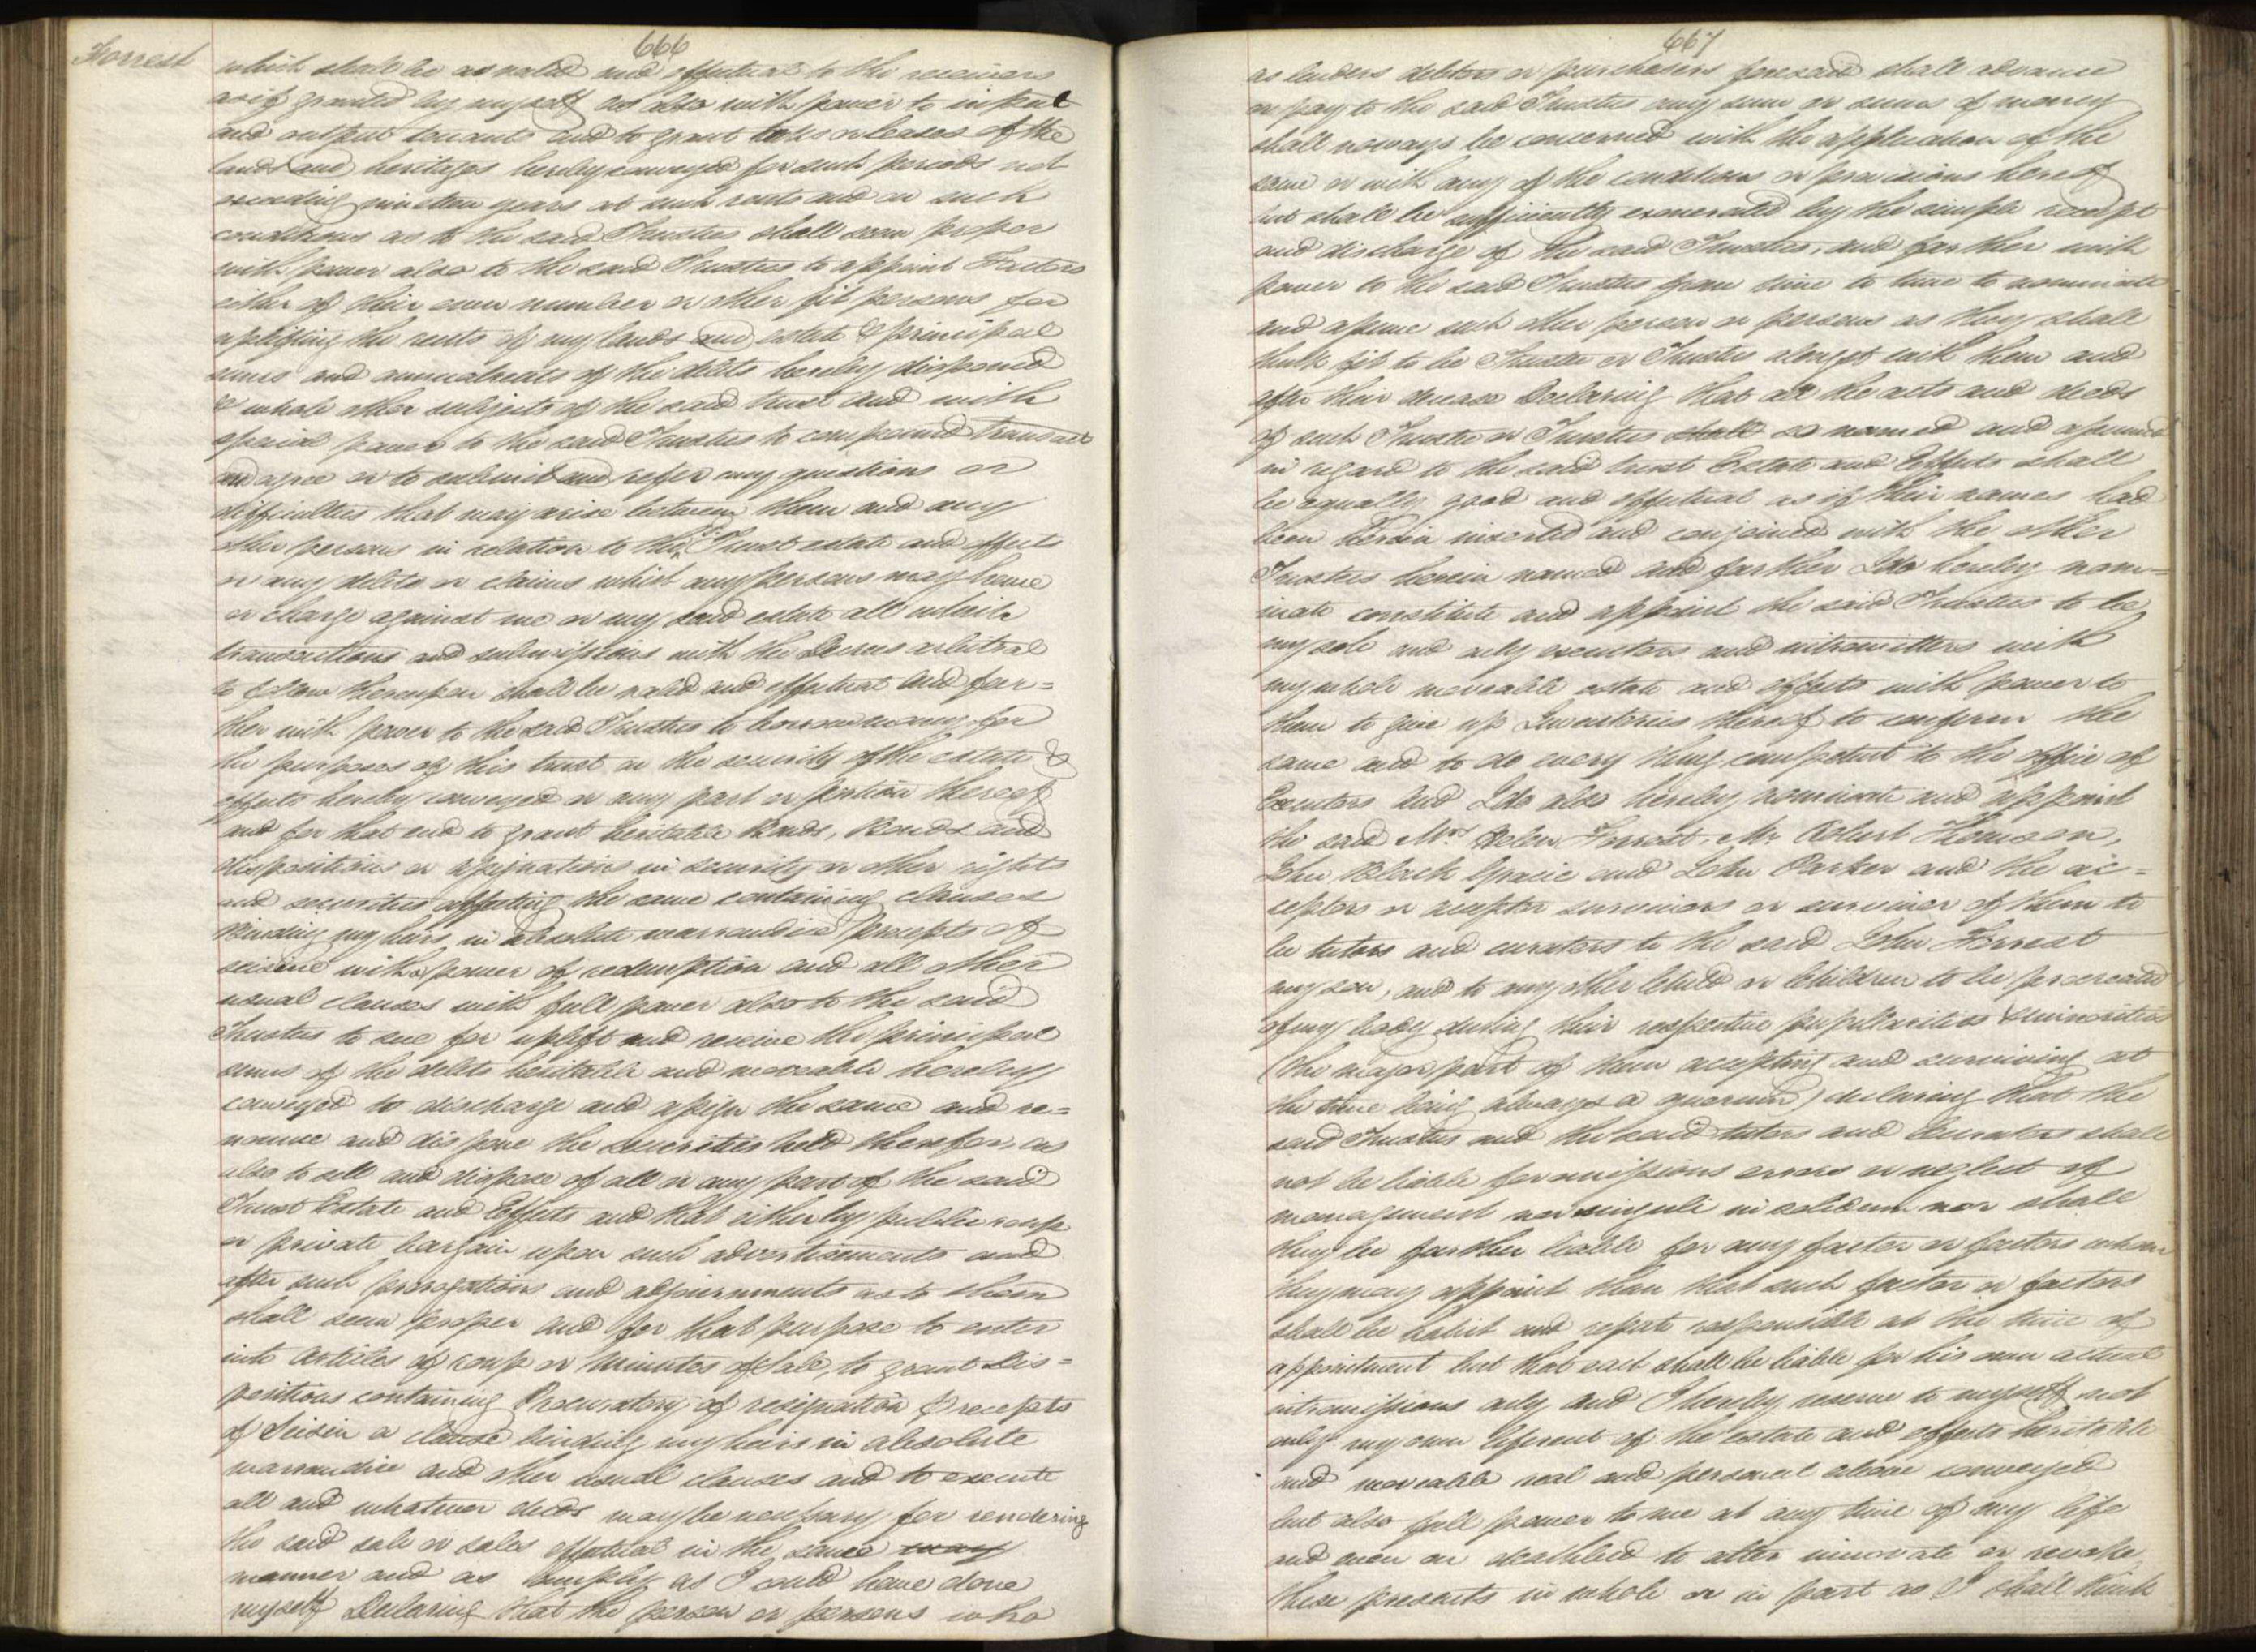 Forrest
666
which shall be as valid and effectual to the receivers
as if granted by myself as also with power to input
and output tenants and to grant tacks or leases of the
lands and heritages hereby conveyed for such periods not
exceeding nineteen years at such rents and on such
conditions as to the said Trustees shall seem proper
with power also to the said Trustees to appoint Factors
either of their own number or other fit persons for
uplifting the rents of my lands and estate & principal
sums and annualrents of the debts hereby disponed
& whole other subjects of the said trust and with
special power to the said Trustees to compound transact
and agree or to submit and refer any questions or
difficulties that may arise between them and any
other persons in relation to the sd. Trust estate and effects
or any debts or claims which any persons may have
or charge against me or my said estate all which
transactions and submissions with the Decrees arbitral
to follow thereupon shall be valid and effectual and far=
ther with power to the said Trustees to borrow money for
the purposes of this trust on the security of the estate &
effects hereby conveyed or any part or portion thereof
and for that end to grant heritable Bonds, Bonds and
dispositions or assignations in security or other rights
and securities affecting the same containing clauses
Binding my heirs in absolute warrandice Precepts of
seisine with power of redemption and all other
usual clauses with full power also to the said
Trustees to sue for uplift and receive the principal
sums of the debts heritable and moveable hereby
conveyed to discharge and assign the same and re=
nounce and dispone the securities held therefor, as
also to sell and dispose of all or any part of the said
Trust Estate and Effects and that either by public roup
or private bargain upon such advertisements and
after such prorogations and adjournments as to them
shall seem proper and for that purpose to enter
into articles of roup or minutes of Sale, to grant Dis=
positions containing Procuratory of resignation Precepts
of Seisin a clause binding my heirs in absolute
warrandice and other usual clauses and to execute
all and whatever deeds may be necessary for rendering
the said sale or sales effectual in the same way
manner and as amply as I could have done
myself Declaring that the person or persons who
667
as lenders debtors or purchasers foresaid shall advance
or pay to the said Trustees any sum or sums of money
shall noways be concerned with the application of the
same or with any of the conditions or provisions hereof
but shall be sufficiently exonerated by the simple receipt
and discharge of the said Trustees, and farther with
power to the said Trustees from time to time to nominate
and assume such other person or persons as they shall
think fit to be Trustee or Trustees alongst with them and
after their decease Declaring that all the acts and deeds
of such Trustee or Trustees shall so named and assumed
in regard to the said trust Estate and Effects shall
be equally good and effectual as if their names had
been herein inserted and conjoined with the other
Trustees herein named and farther I do hereby nom=
inate constitute and appoint the said Trustees to be
my sole and only executors and intromitters with
my whole moveable estate and effects with power to
them to give up Inventories thereof to confirm the
same and to do every thing competent to the office of
Executors And I do also hereby nominate and appoint
the said Mrs. Helen Forrest, Mr. Robert Thomson,
John Black Gracie and John Parker and the ac=
ceptors or acceptor survivors or survivor of them to
be tutors and curators to the said John Forrest
my son, and to any other Child or Children to be procreated
of my body during their respective pupillarities & minorities
(the major part of them accepting and surviving at
the time being always a quorum) declaring that the
said Trustees and the said tutors and Curators shall
not be liable for omissions errors or neglect of
management nor singuli in solidum nor shall
they be farther liable for any factor or factors whom
they may appoint than that such factor or factors
shall be habit and repute responsible at the time of
appointment but that each shall be liable for his own actual
intromissions only and I hereby reserve to myself not
only my own liferent of the estate and effects heritable
and moveable real and personal above conveyed
but also full power to me at any time of my life
and even on deathbed to alter innovate or revoke
these presents in whole or in part as I shall think